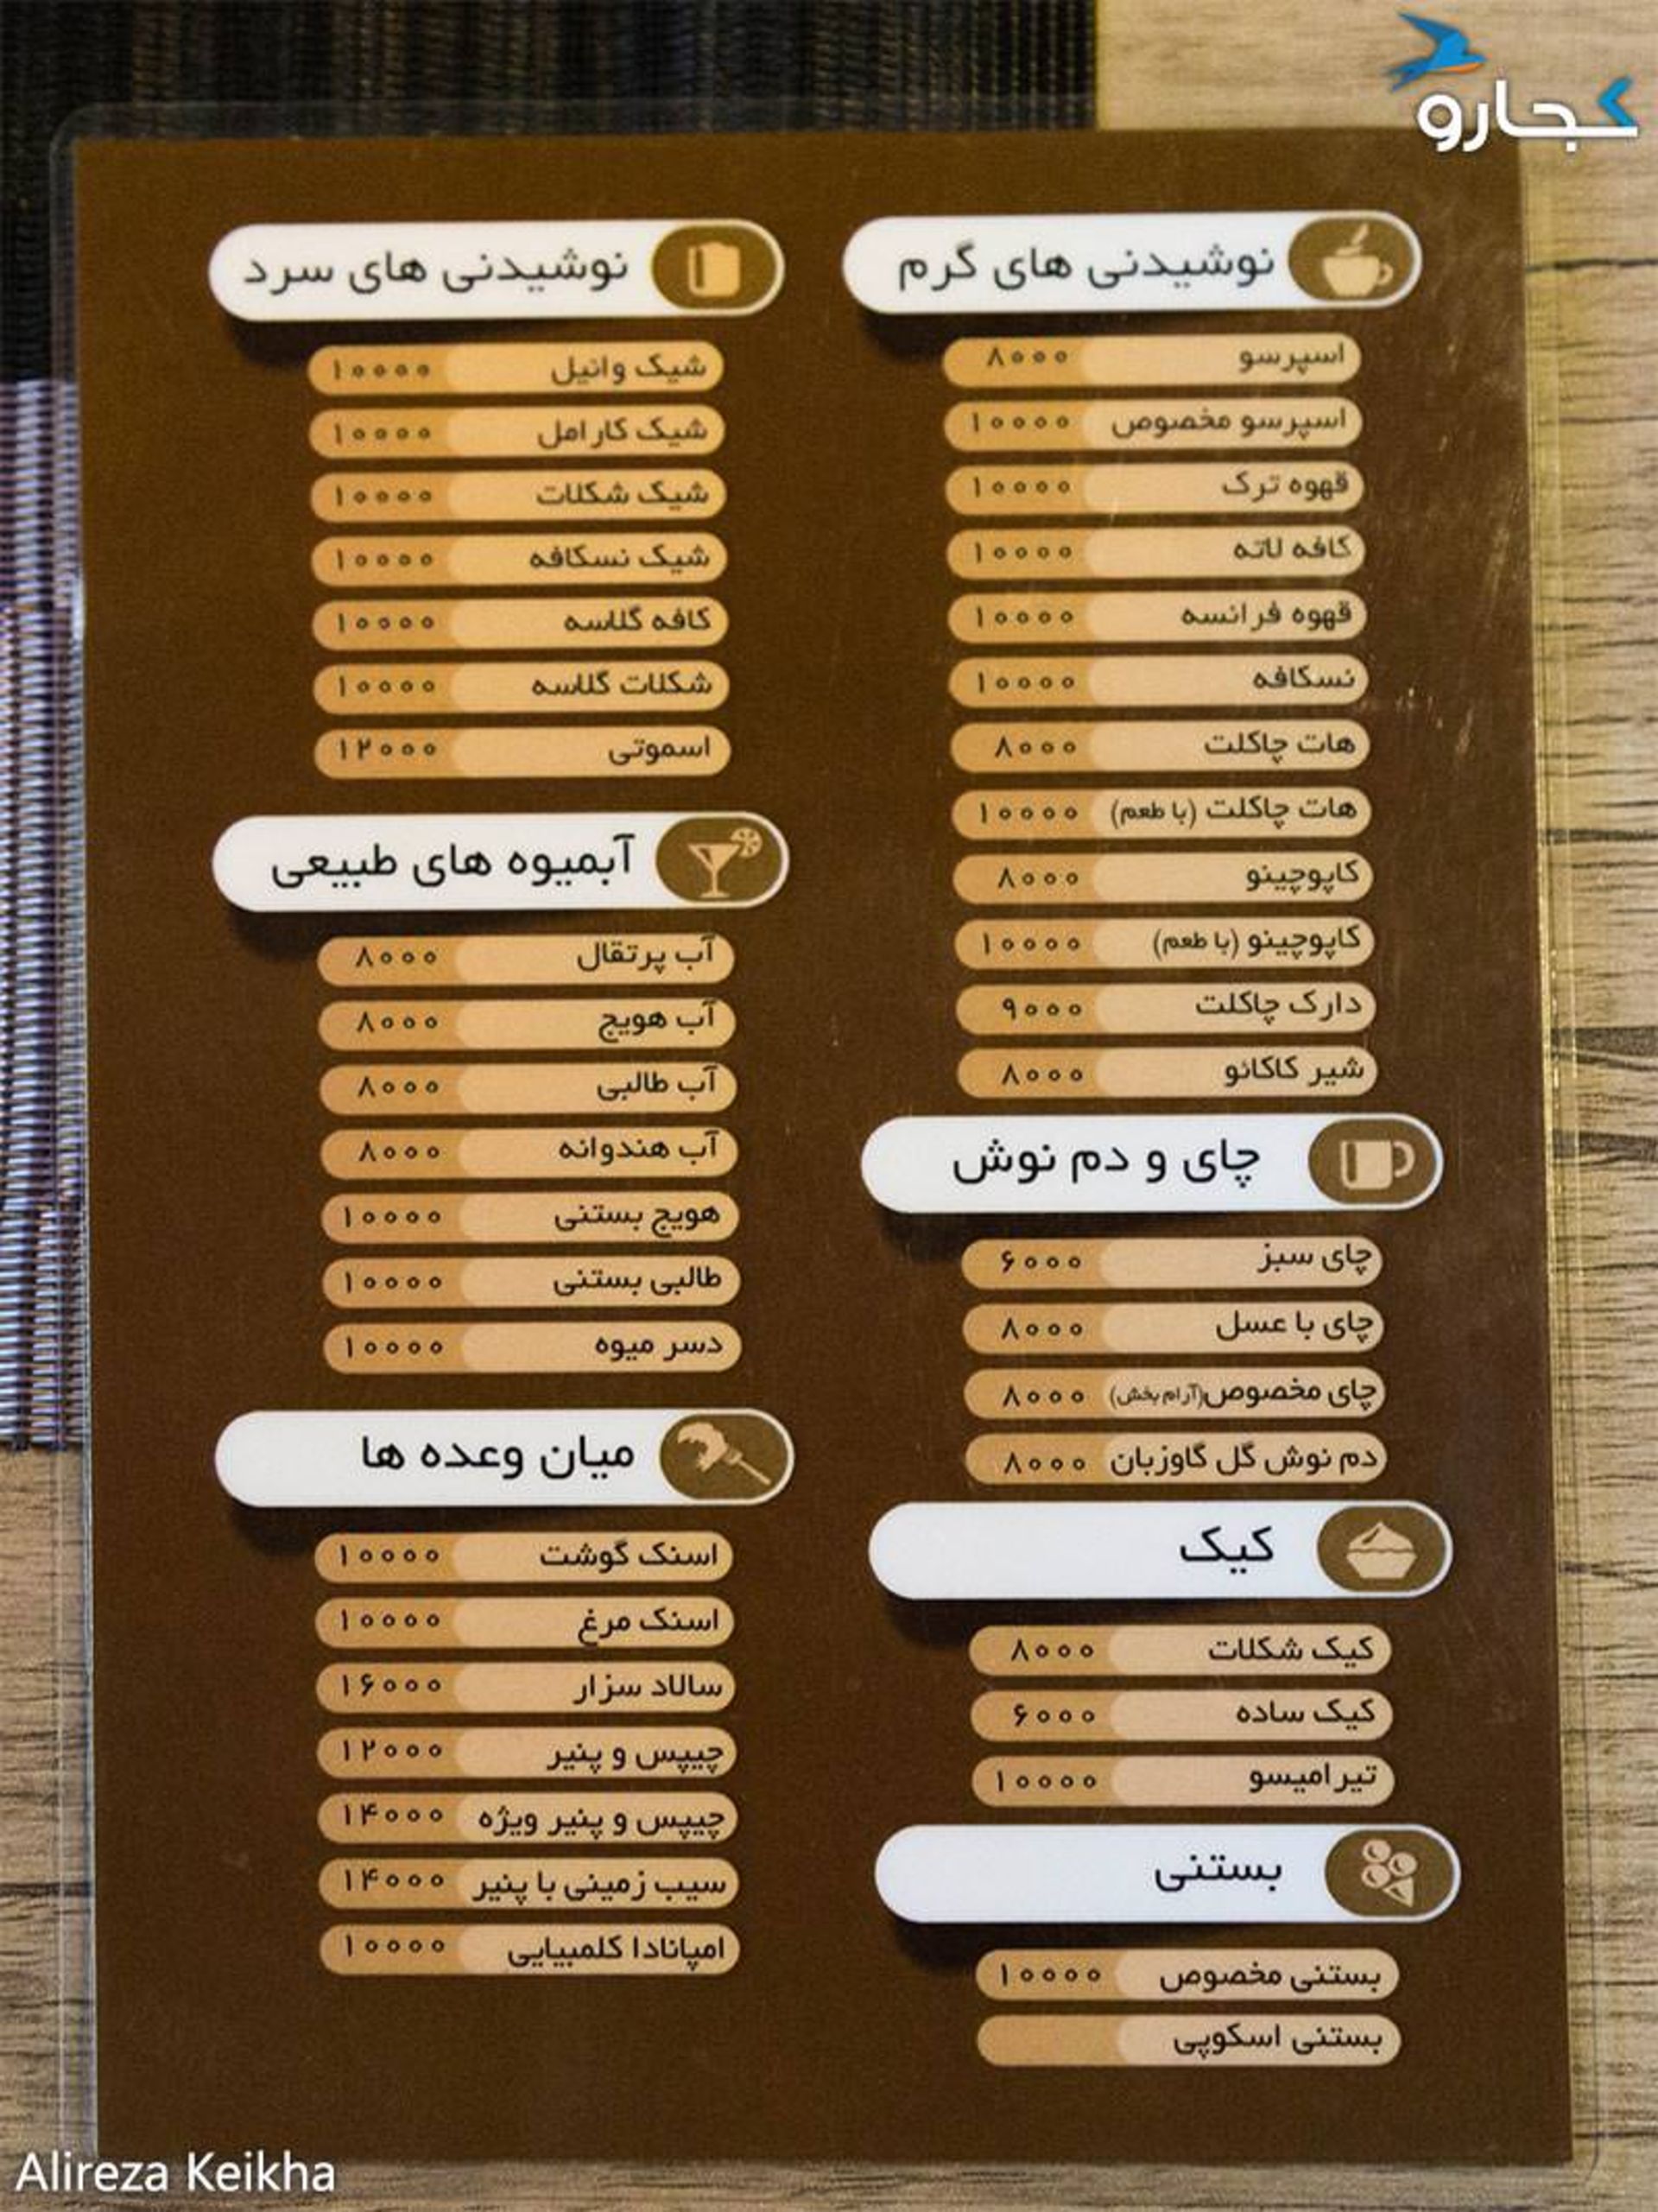 کجارو
نوشیدنی های گرم
اسپرسو ۸۰۰۰
اسپرسو مخصوص ۱۰۰۰۰
قهوه ترک ۱۰۰۰۰
کافه لاته ۱۰۰۰۰
قهوه فرانسه ۱۰۰۰۰
نسکافه ۱۰۰۰۰
هات چاکلت ۸۰۰۰
هات چاکلت (با طعم) ۱۰۰۰۰
کاپوچینو ۸۰۰۰
کاپوچینو (با طعم) ۱۰۰۰۰
دارک چاکلت ۹۰۰۰
شیر کاکائو ۸۰۰۰
چای و دم نوش
چای سبز ۶۰۰۰
چای با عسل ۸۰۰۰
چای مخصوص(آرام بخش) ۸۰۰۰
دم نوش گل گاوزبان ۸۰۰۰
کیک
کیک شکلات ۸۰۰۰
کیک ساده ۶۰۰۰
تیرامیسو ۱۰۰۰۰
بستنی
بستنی مخصوص ۱۰۰۰۰
بستنی اسکوپی
نوشیدنی های سرد
شیک وانیل ۱۰۰۰۰
شیک کارامل ۱۰۰۰۰
شیک شکلات ۱۰۰۰۰
شیک نسکافه ۱۰۰۰۰
کافه گلاسه ۱۰۰۰۰
شکلات گلاسه ۱۰۰۰۰
اسموتی ۱۲۰۰۰
آبمیوه های طبیعی
آب پرتقال ۸۰۰۰
آب هویج ۸۰۰۰
آب طالبی ۸۰۰۰
آب هندوانه ۸۰۰۰
هویج بستنی ۱۰۰۰۰
طالبی بستنی ۱۰۰۰۰
دسر میوه ۱۰۰۰۰
میان وعده ها
اسنک گوشت ۱۰۰۰۰
اسنک مرغ ۱۰۰۰۰
سالاد سزار ۱۶۰۰۰
چیپس و پنیر ۱۲۰۰۰
چیپس و پنیر ویژه ۱۴۰۰۰
سیب زمینی با پنیر ۱۴۰۰۰
امپانادا کلمبیایی ۱۰۰۰۰
Alireza Keikha